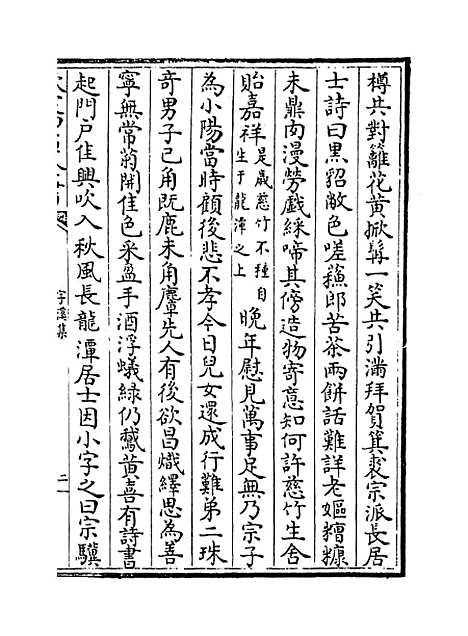 樽共對籬花黄掀髯一笑共引滿拜賀箕裘宗派長居
士詩曰黒貂敝色嗟蘓郎苦茶兩餅話難詳老嫗糟糠
未鼎肉漫勞戯綵啼其傍造物寄意知何許慈竹生舍
貽嘉祥是歲慈竹不種自生于龍潭之上晚年慰見萬事足無乃宗子
為小陽當時顧後悲不孝今日兒女還成行難弟二珠
奇男子已角既鹿未角麞先人有後欲昌熾繹思為善
寜無常菊開佳色采盈手酒浮蟻緑仍鵞黄喜有詩書
起門戸佳興吹入秋風長龍潭居士因小字之曰宗驥
字溪集
二